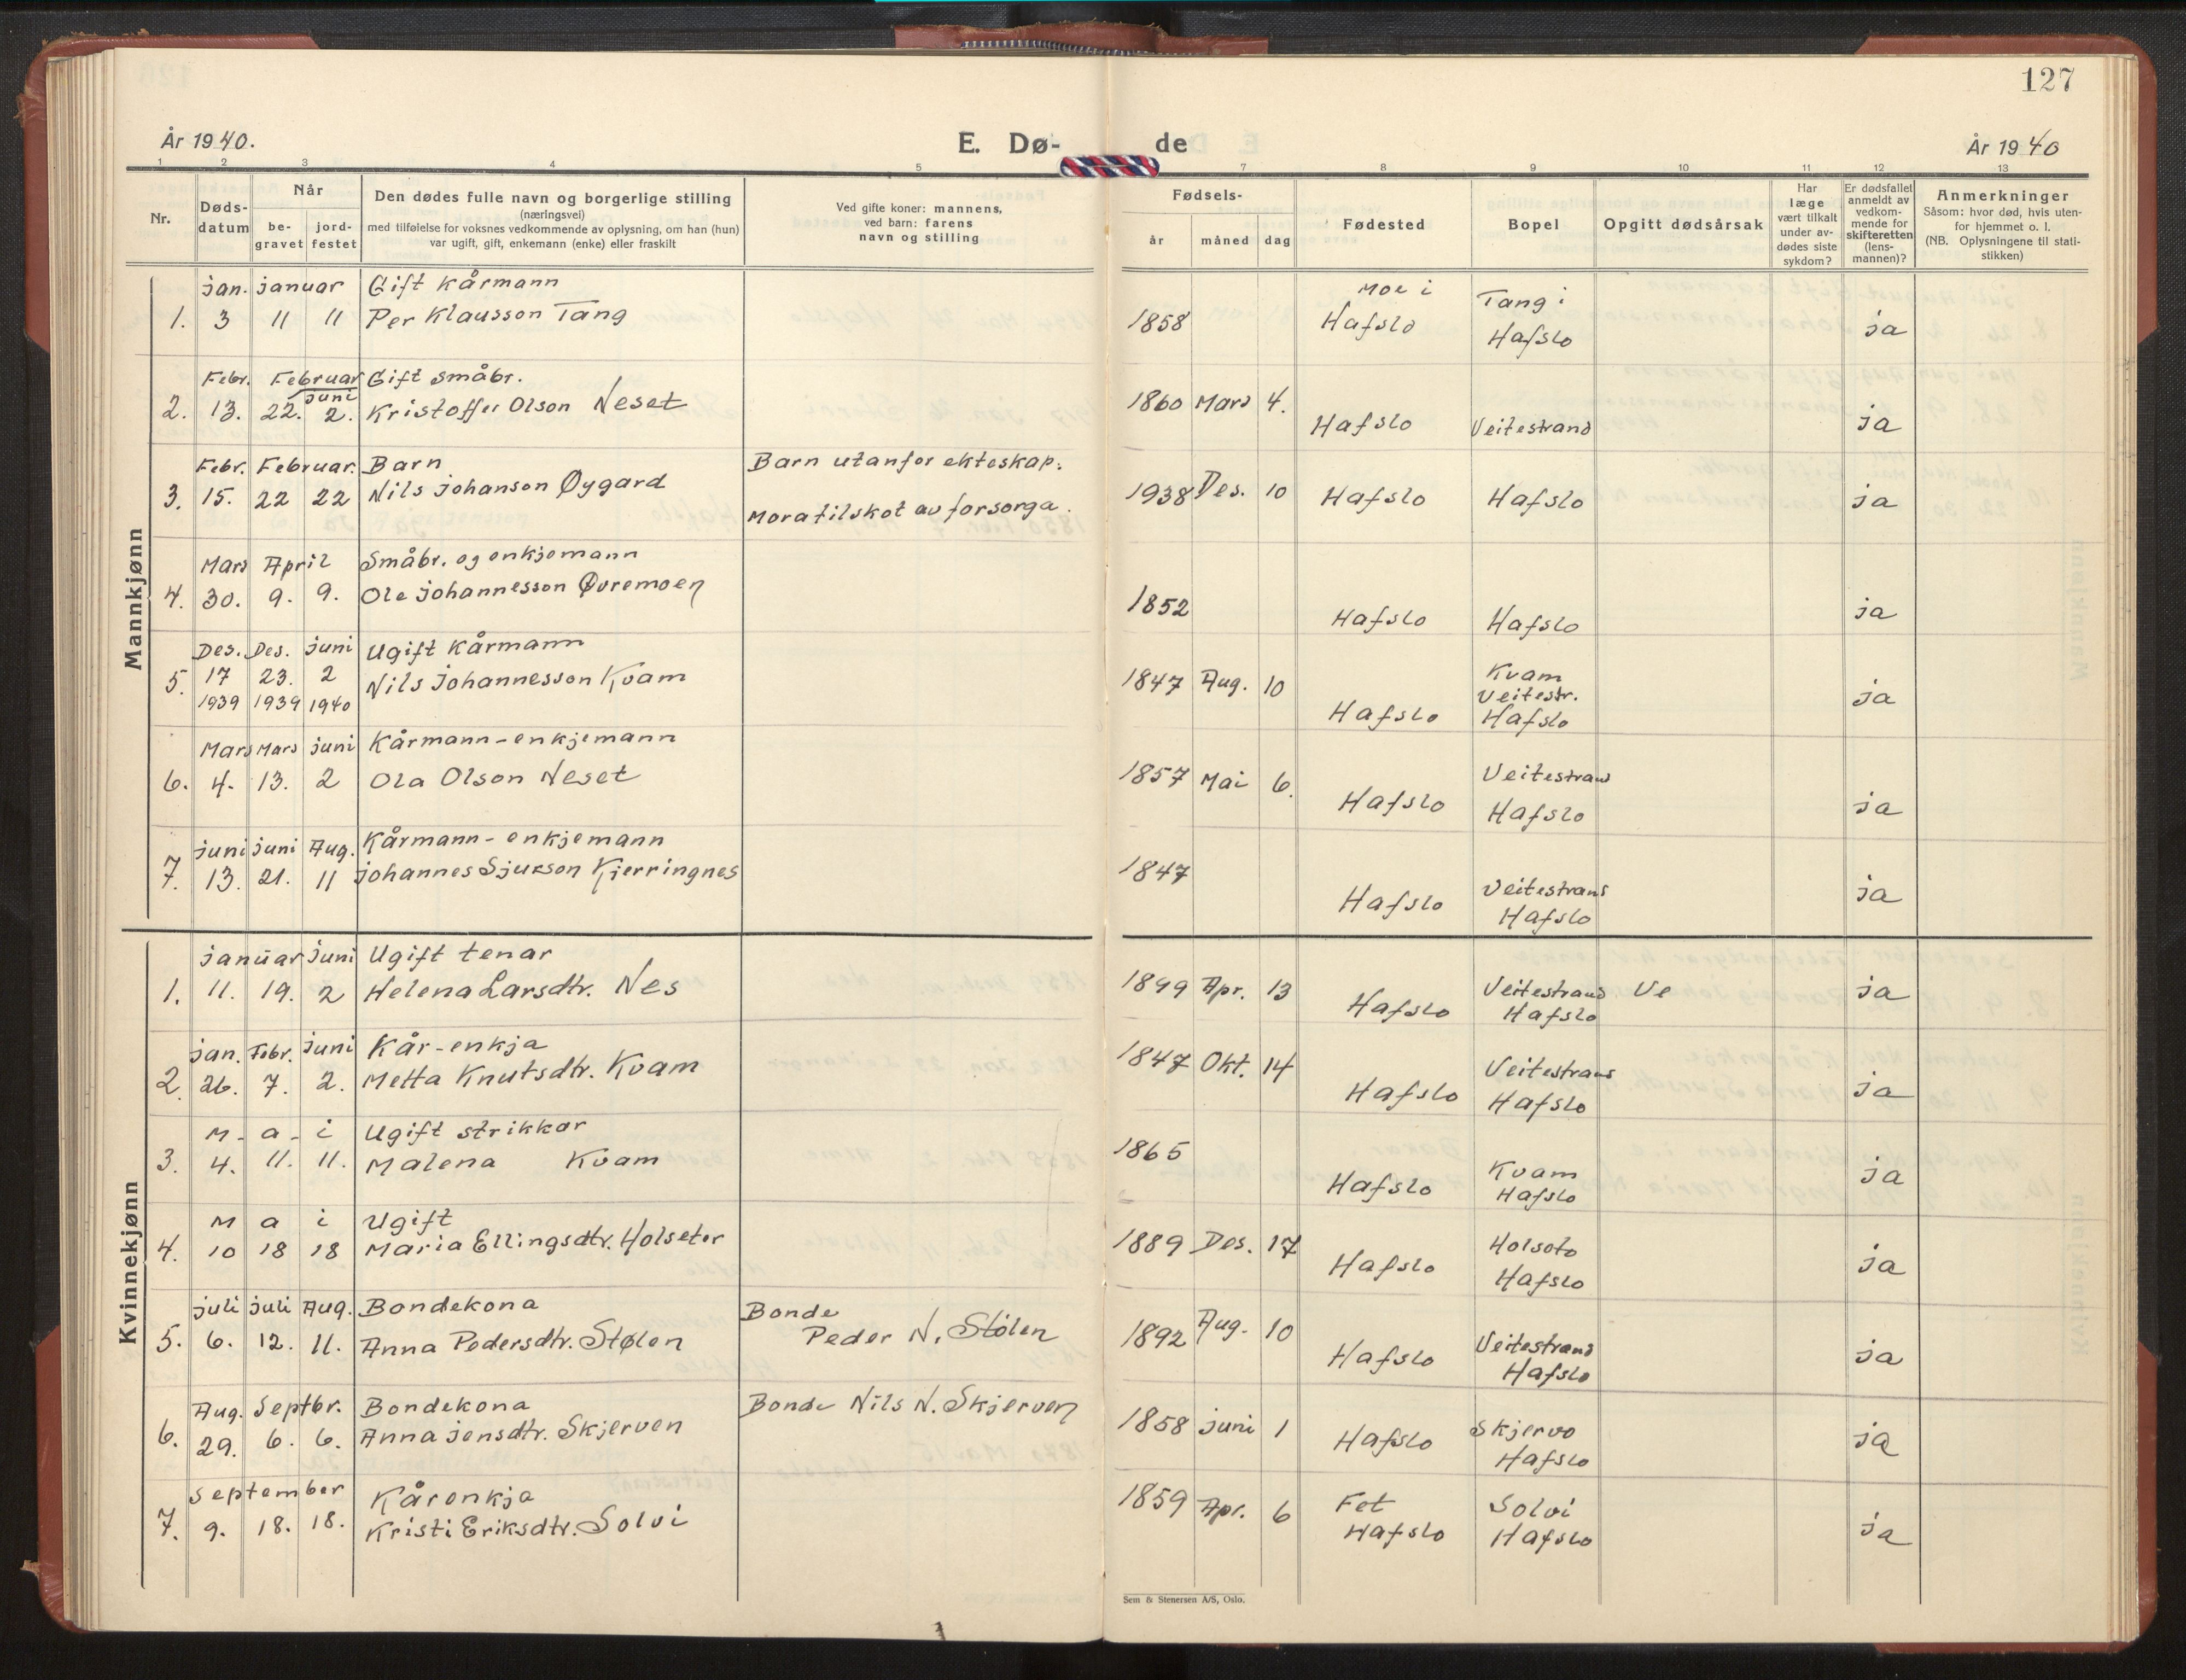 127
År 1940.
E. Dø-
de
År 1940
1 2 3 4 5 7 8 9 10 11 12 13
Nr.
Døds-
datum
Når
be-
gravet
jord-
festet
Den dødes fulle navn og borgerlige stilling
(næringsvei)
med tilføielse for voksnes vedkommende av oplysning, om han (hun)
var ugift, gift, enkemann (enke) eller fraskilt
Ved gifte koner: mannens,
ved barn: farens
navn og stilling
Fødsels-
år måned dag
Fødested
Bopel
Opgitt dødsårsak
Har
læge
vært tilkalt
under av-
dødes siste
sykdom?
Er dødsfallet
anmeldt av
vedkom-
mende for
skifteretten
(lens-
mannen)?
Anmerkninger
Såsom: hvor død, hvis uten-
for hjemmet o. l.
(NB. Oplysningene til stati-
stikken)
Mannkjønn
jan. januar Gift kårmann Moe i Tang i
1. 3 11 11 Per Klausson Tang 1858 Hafslo Hafslo ja
Febr. Februar Gift småbr.
juni
2. 13. 22. 2. Kristoffer Olson Neset 1860 Mars 4. Hafslo Veitestrand ja
Febr. Februar. Barn Barn utanfor ekteskap.
3. 15. 22 22 Nils Johanson Øygard 1938 Des. 10 Hafslo Hafslo ja
Mora tilskot av forsorga.
Mars April Småbr. og enkjemann
4. 30. 9. 9. Ole Johannesson Øvremoen 1852 Hafslo Hafslo ja
Des. Des. juni Ugift kårmann Kvam
5. 17 23. 2 Nils Johannesson Kvam 1847 Aug. 10 Veitestr. ja
1939 1939 1940 Hafslo Hafslo
Mars Mars juni Kårmann-enkjemann Veitestrand
6. 4. 13. 2 Ola Olson Neset 1857 Mai 6. Hafslo Hafslo ja
juni juni Aug. Kårmann-enkjemann Veitestrand
7. 13. 21. 11 Johannes Sjurson Kjerringnes 1847 Hafslo Hafslo ja
Kvinnekjønn
januar juni Ugift tenar Veitestrand
1. 11. 19. 2 Helena Larsdtr. Nes 1899 Apr. 13 Hafslo Hafslo Ve ja
jan. Febr. juni Kår-enkja Veitestrand
2. 26. 7. 2. Metta Knutsdtr. Kvam 1847 Okt. 14 Hafslo Hafslo ja
M - a - i Ugift strikkar Kvam
3. 4. 11. 11. Malena Kvam 1865 Hafslo Hafslo ja
M a i Ugift Holsete
4. 10 18 18 Maria Ellingsdtr. Holseter 1889 Des. 17 Hafslo Hafslo ja
juli juli Aug. Bondekona Bonde Veitestrand
5. 6. 12. 11. Anna Pedersdtr. Stølen Peder N. Stølen 1892 Aug. 10 Hafslo Hafslo ja
Aug. Septbr. Bondekona Bonde Nils N. Skjerven Skjervo
6. 29. 6. 6. Anna Jensdtr. Skjerven 1858 juni 1 Hafslo Hafslo ja
September Kårenkja Fet Solvi
7. 9. 18. 18. Kristi Eriksdtr. Solvi 1859 Apr. 6 Hafslo Hafslo ja
Sem & Stenersen A/S, Oslo.